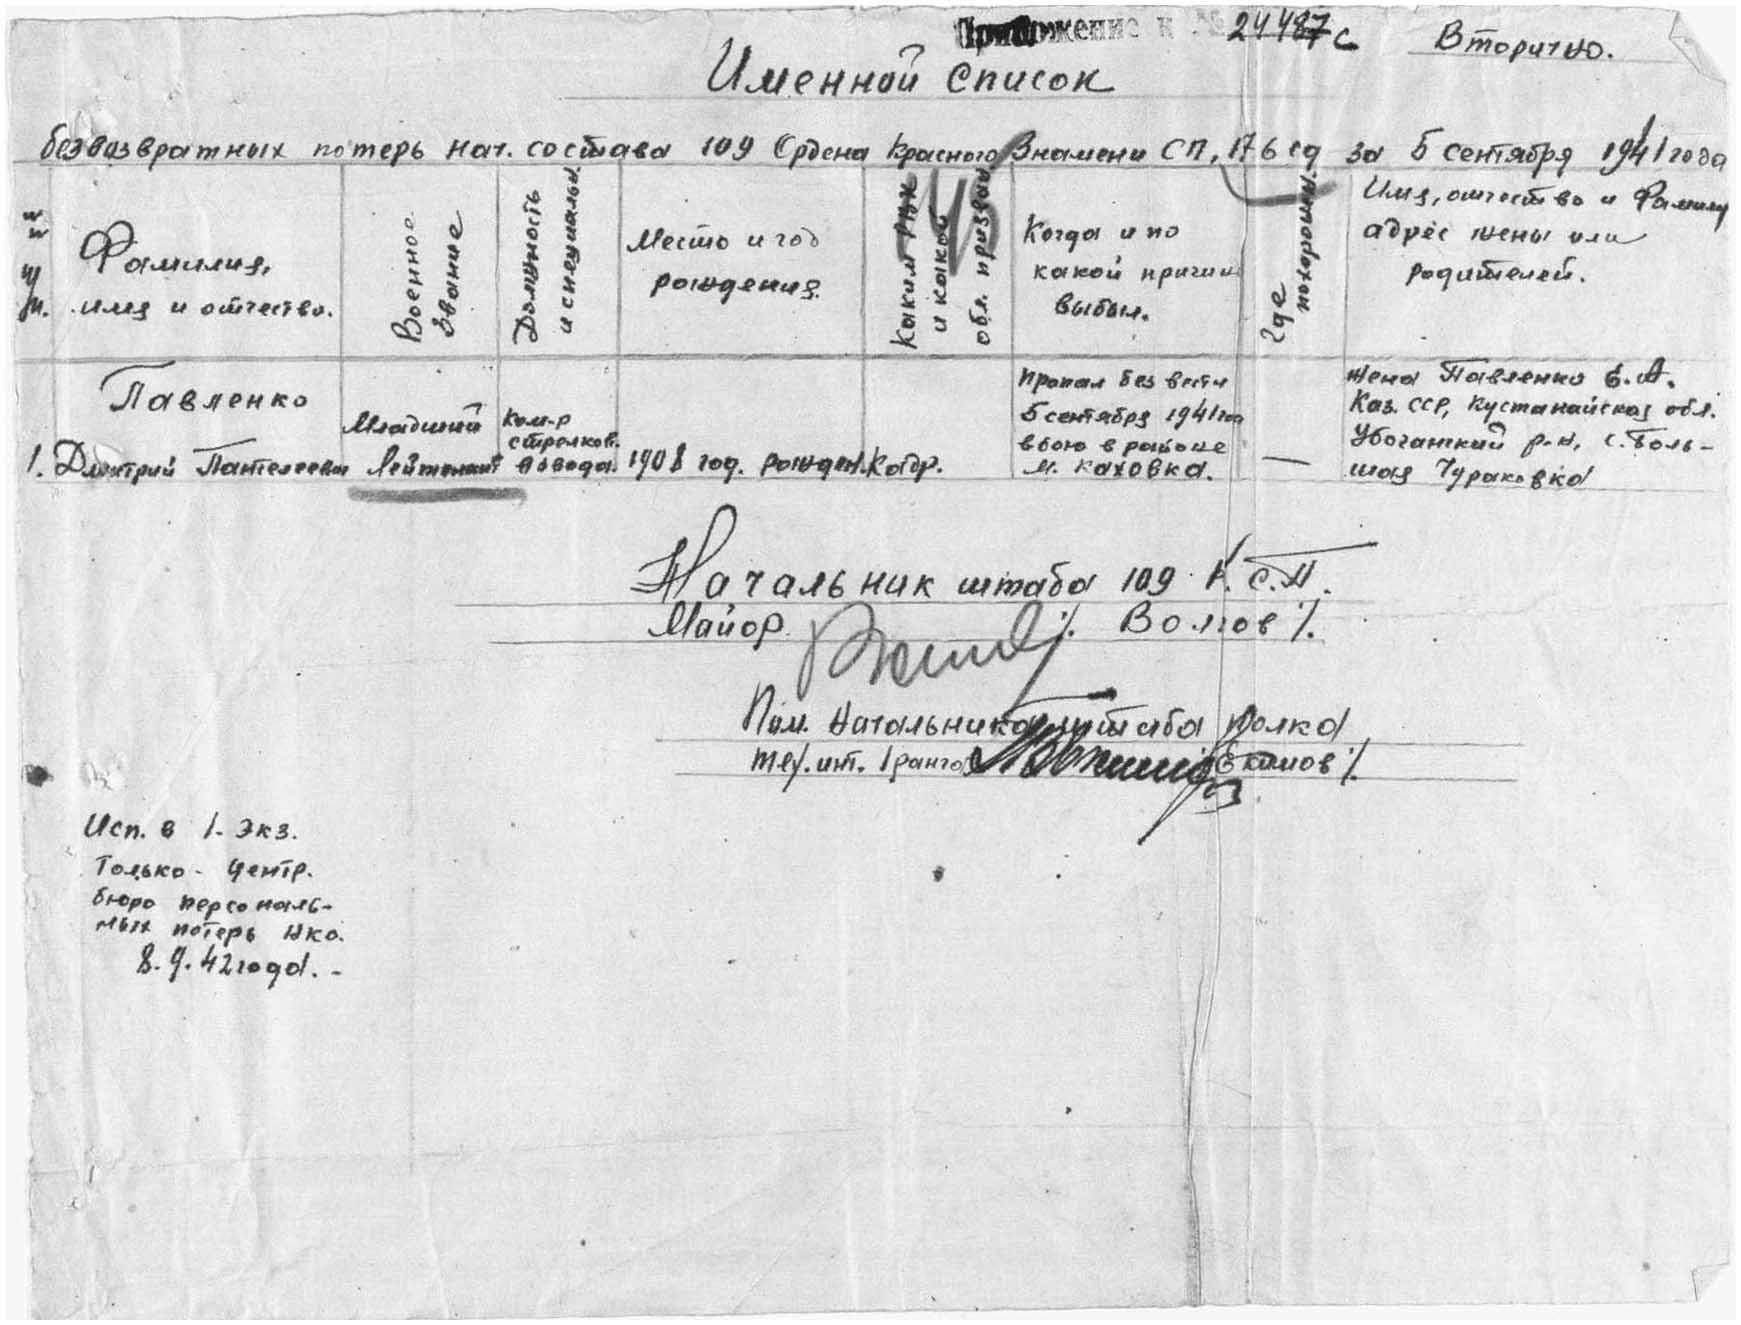 Приложение к № 24487с Вторично.
Именной список
безвозвратных потерь нач. состава 109 Ордена Красного Знамени СП, 176 сд за 5 сентября 1941 года
№№ п/п.
Фамилия,
имя и отчество.
Военное
звание
Должность
и специальн.
Место и год
рождения.
Каким РВК
и какой
обл. призван
Когда и по
какой причин
выбыл.
Где
похоронен.
Имя, отчество и Фамилия
адрес жены или
родителей.
1.
Павленко
Дмитрий Пантелееви
Младший
Лейтенант
Ком-р
стрелков.
взвода.
1908 год. рожден.
Кадр.
Пропал без вести
5 сентября 1941 год
в бою в районе
м. Каховка.
—
Жена Павленко Е. А.
Каз. ССР, Кустанайская обл.
Убоганский р-н, с. Боль-
шая Чураковка
Начальник штаба 109 К. С.П.
Майор /. Волков /.
Пом. Начальника штаба полка
тех. инт. 1 ранга Екимов /.
Исп. в 1. экз.
Только - центр.
бюро персональ-
ных потерь НКО.
8. 9. 42 года. -